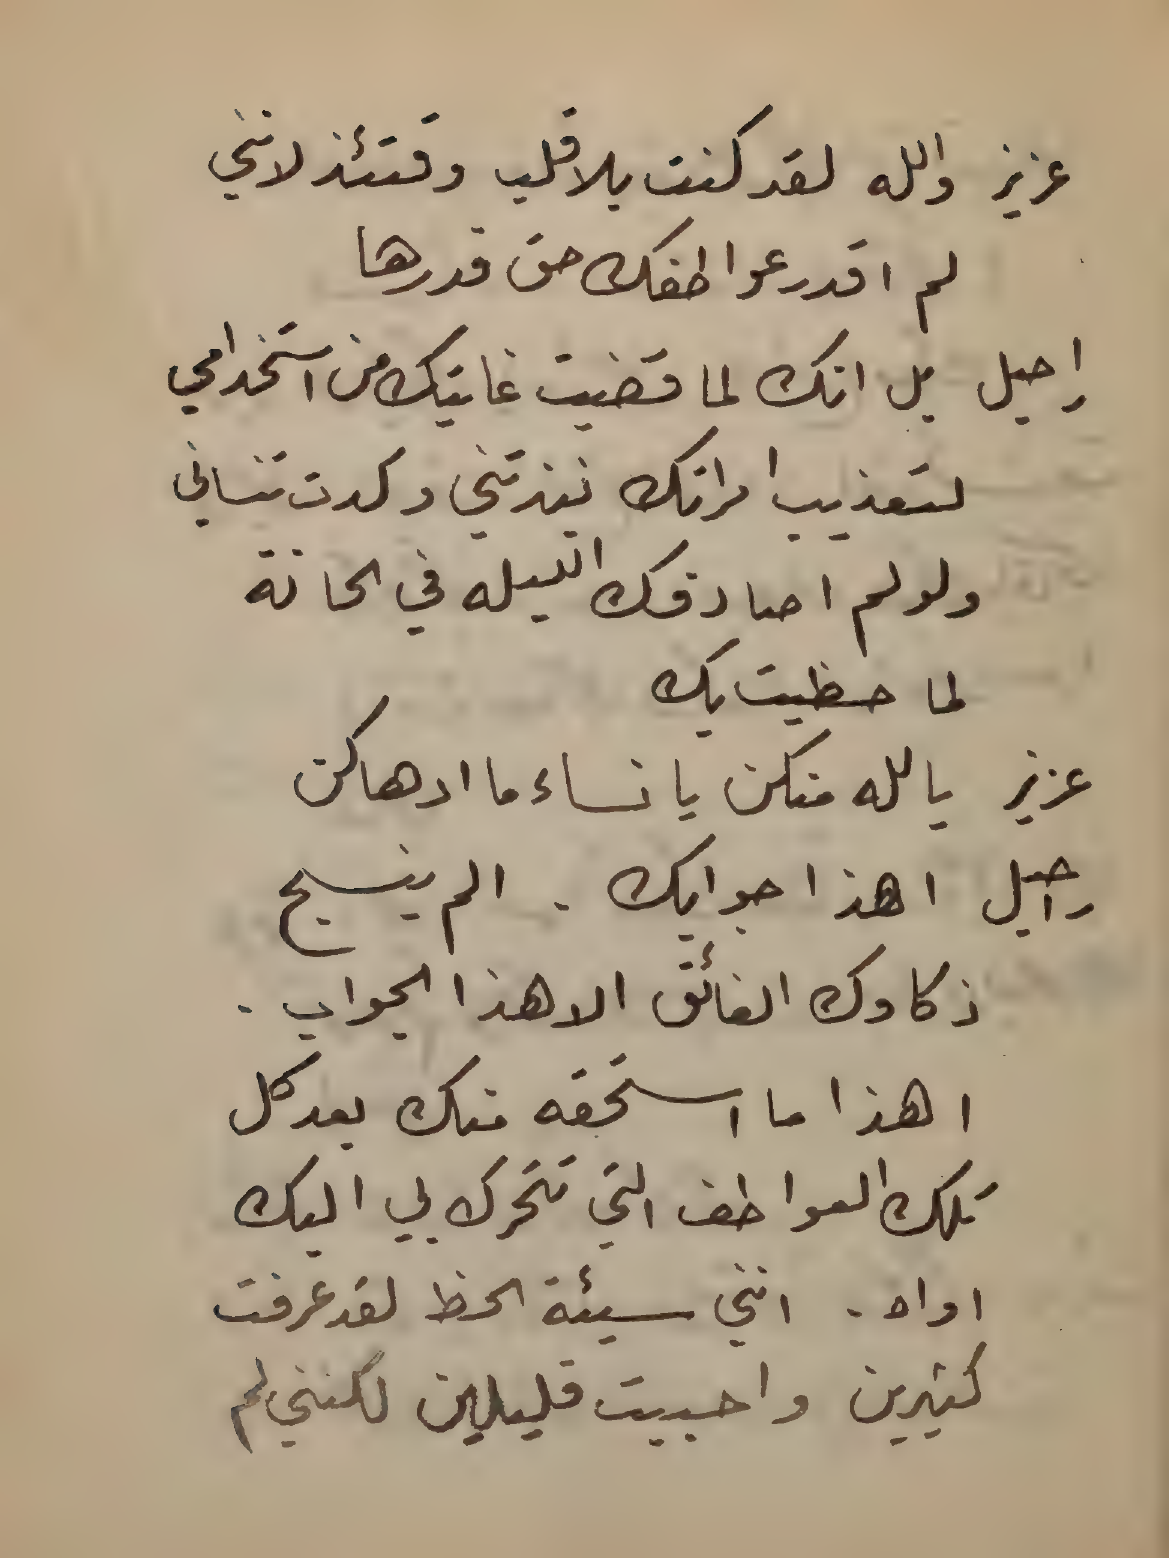 عزيز والله لقد كنت بلا قلب وقتئذ لانني
لم اقدر عواطفك حق قدرها
راحيل بل انك لما قضيت غايتك من استخدامي
لتعذيب امراتك نبذتني وكدت تنساني
ولو لم اصادفك الليله في الحانة
لما حظيت بك
عزيز يالله منكن يا نساء ما ادهاكن
راحيل اهذا جوابك . الم ينسج
ذكاوك الفائق الا هذا الجواب .
اهذا ما استحقه منك بعد كل
تلك العواطف التي تتحرك بي اليك
اواه . انني سيئة الحظ لقد عرفت
كثيرين واحببت قليلين لكنني لم